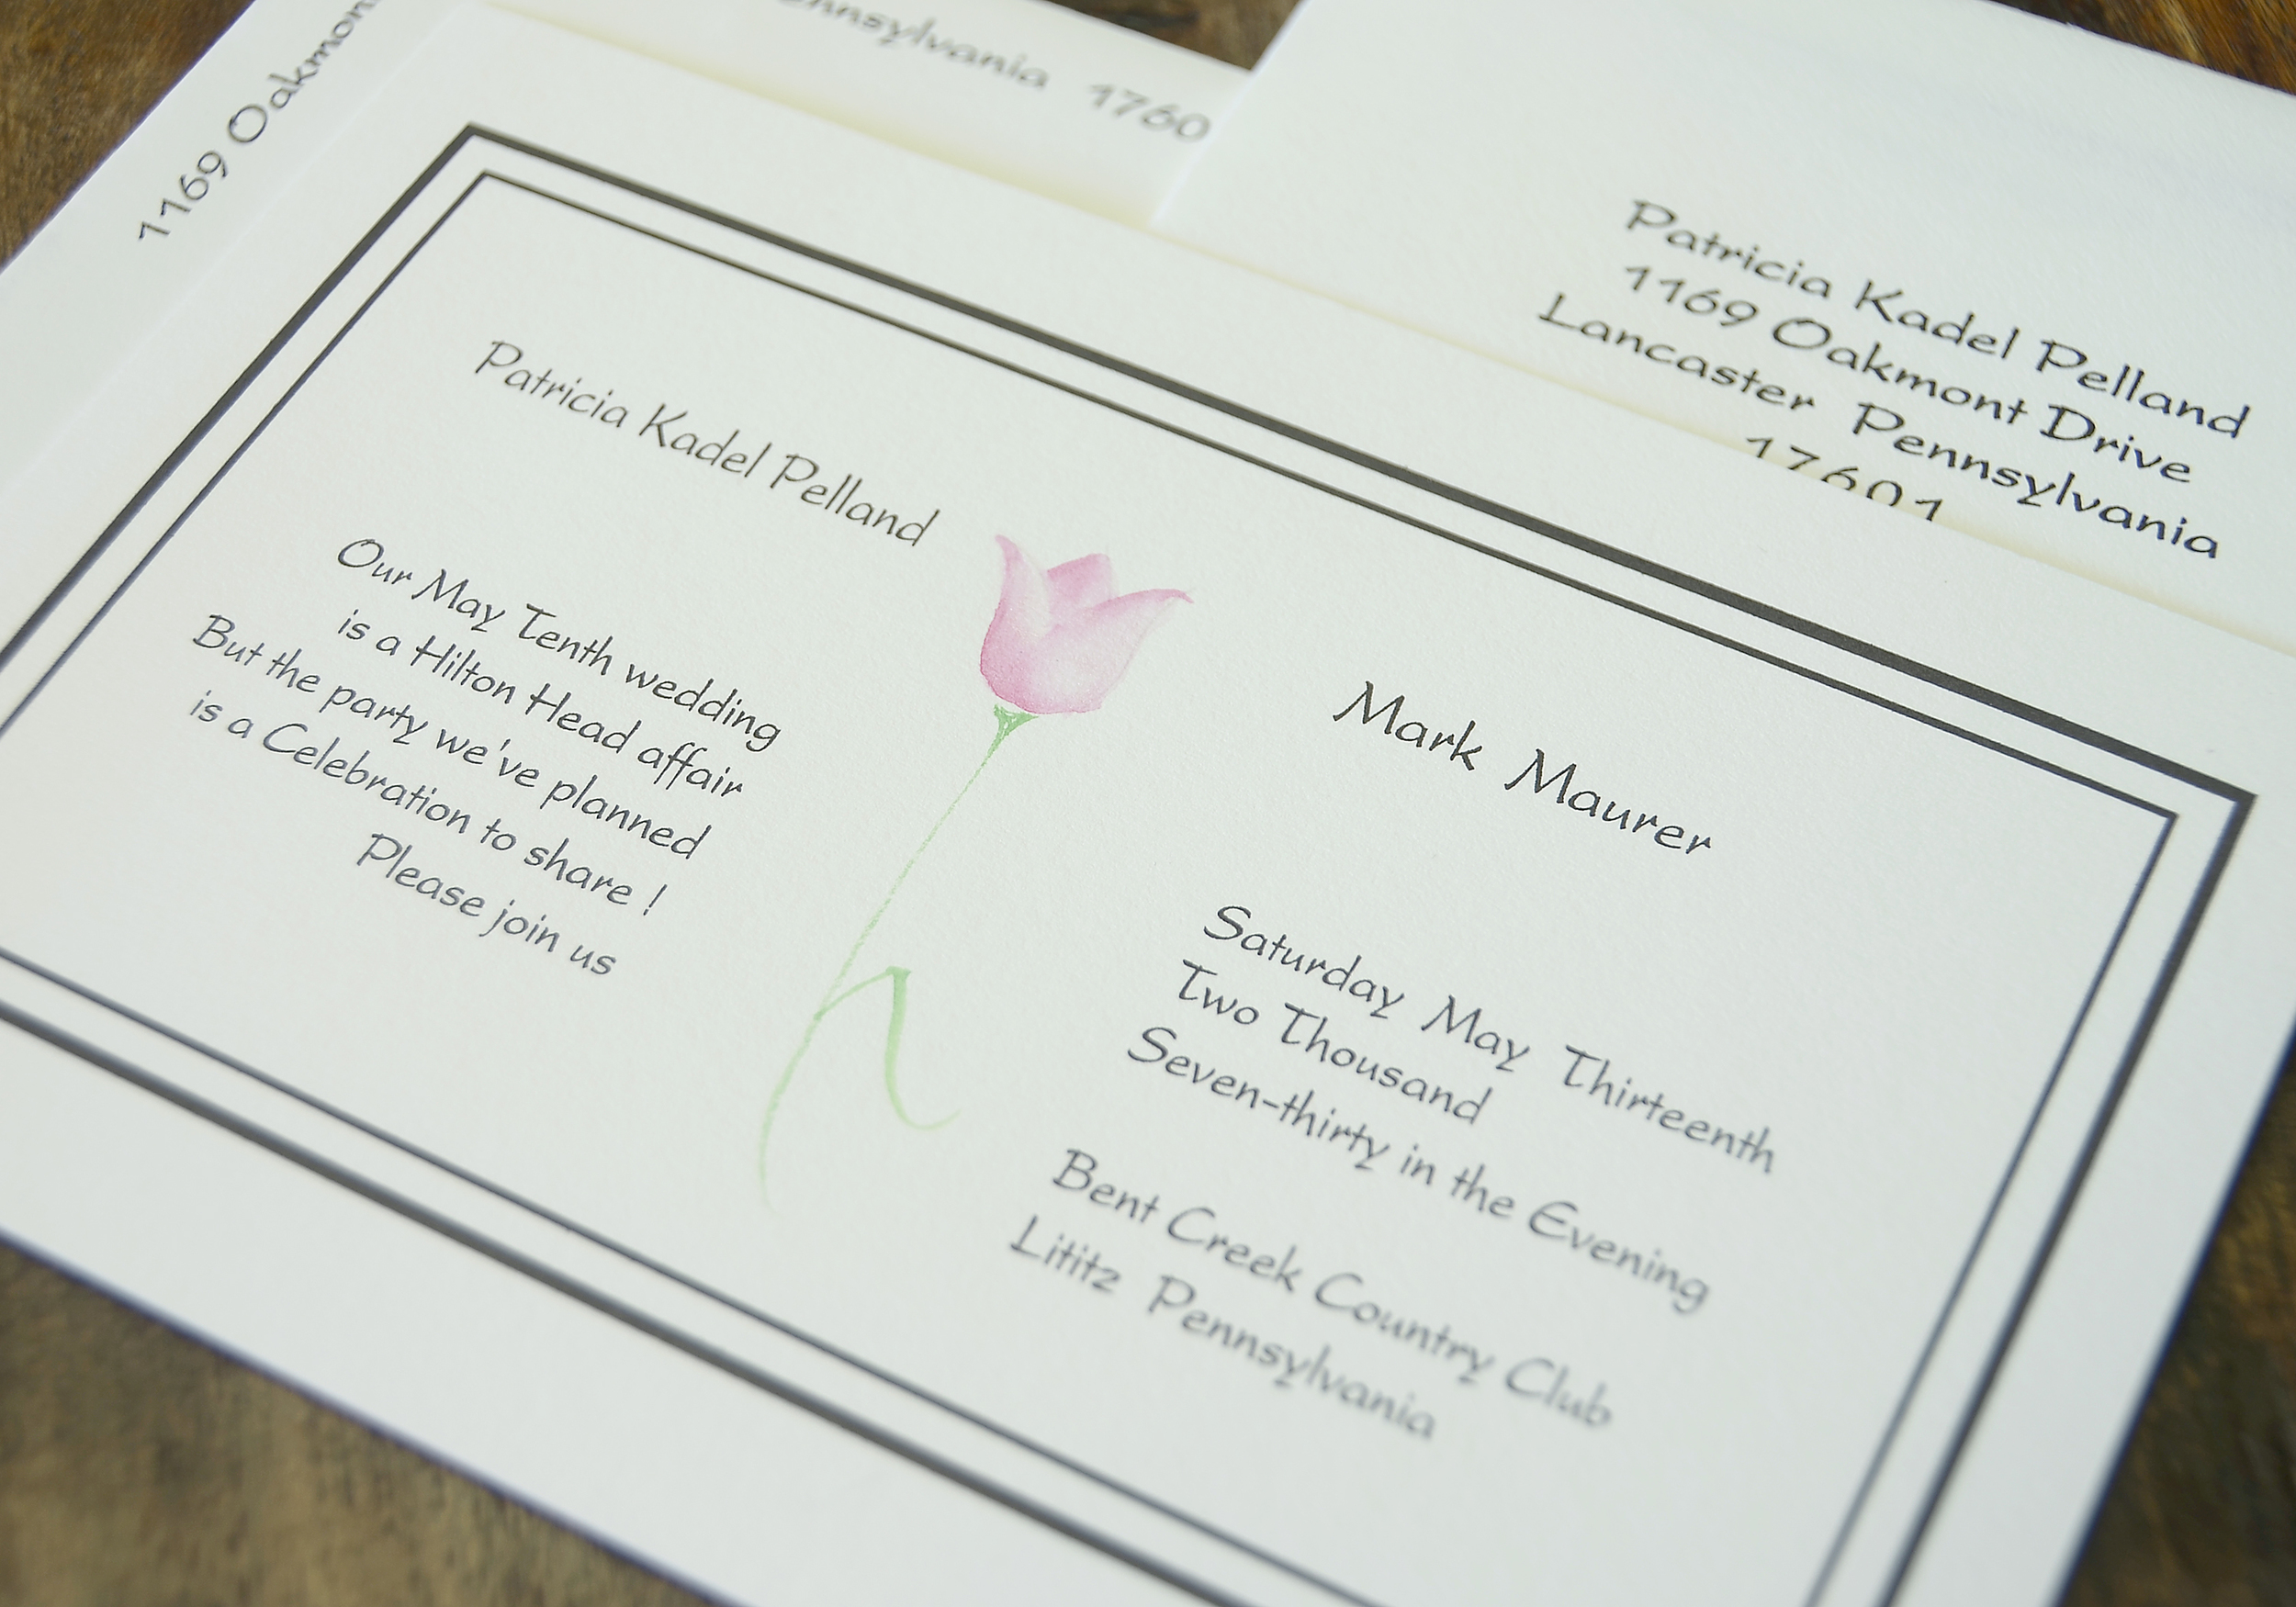 1169 Oakmon
Pennsylvania 1760
Patricia Kadel Pelland
1169 Oakmont Drive
Lancaster Pennsylvania
17601
Patricia Kadel Pelland
Our May Tenth wedding
is a Hilton Head affair
But the party we've planned
is a Celebration to share !
Please join us
Mark Maurer
Saturday May Thirteenth
Two Thousand
Seven-thirty in the Evening
Bent Creek Country Club
Lititz Pennsylvania